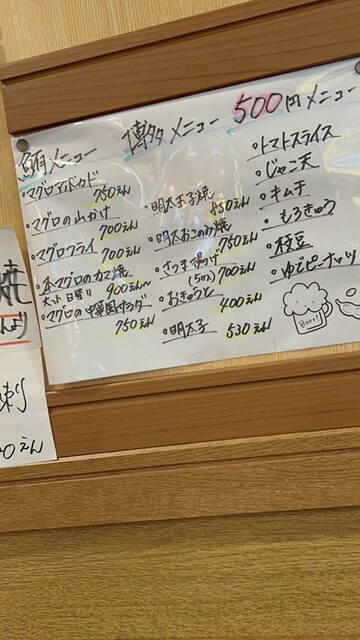 鮪メニュー
・マグロアボカド
750えん
・マグロの山かけ
700えん
・マグロフライ
700えん
・本マグロのカマ焼
大小日替り 900えん〜
・マグロの中華風サラダ
750えん
博多メニュー
・明太玉子焼
850えん
・明太お好み焼
750えん
・さつま揚げ
(5ヶ) 700えん
・おきゅうと
400えん
・明太子 530えん
500円メニュー
・トマトスライス
・じゃこ天
・キムチ
・もろきゅう
・枝豆
・ゆでピーナッツ
Beer!
焼
刺
0えん